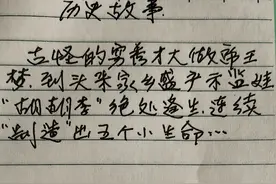 历史故事
古怪的穷秀才大做帝王
梦,到头来家乡盛产示监娃
"胡胡李"绝处逢生,连续
"制造"出五个小生命…